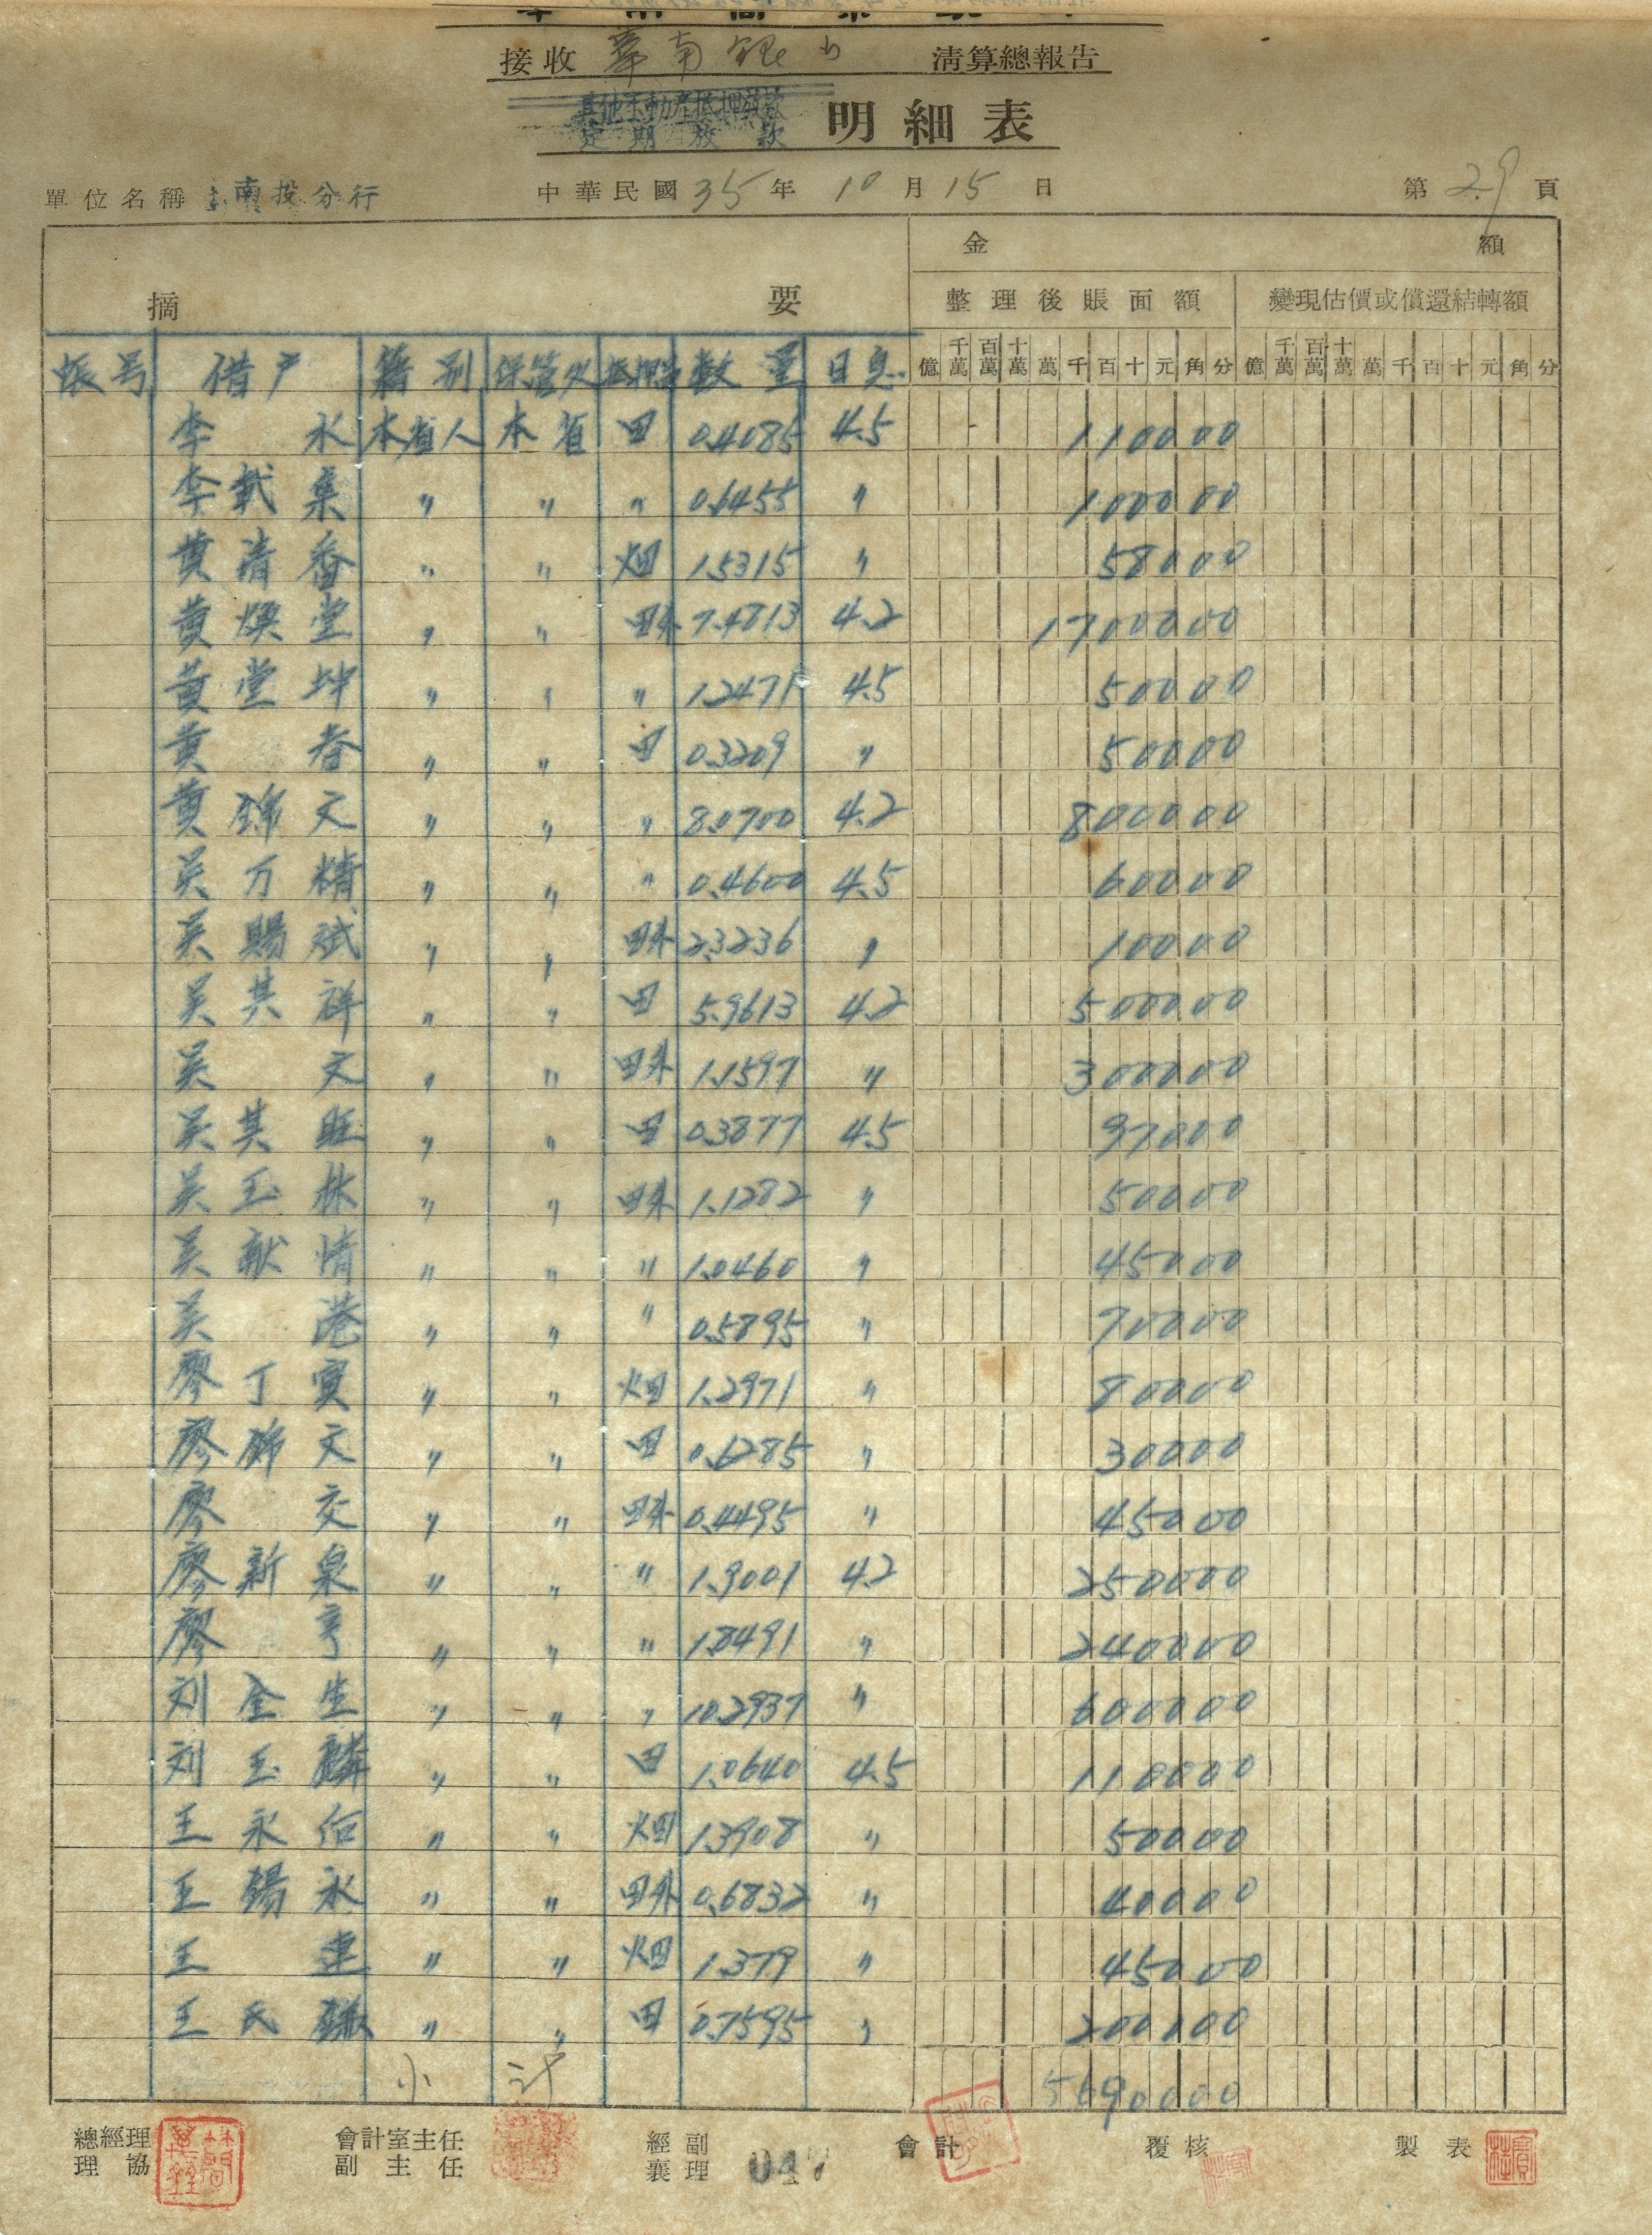 接收 華南銀行 清算總報告
其他不動產抵押放款
定期放款 明細表
單位名稱 南投分行 中華民國 35 年 10 月 15 日 第 29 頁
摘 要 金 額
整理後賬面額 變現估價或償還結轉額
億 千萬 百萬 十萬 萬 千 百 十 元 角 分 億 千萬 百萬 十萬 萬 千 百 十 元 角 分
帳号 借戶 籍别 保管处 抵押品 数量 日息
李 水 本省人 本省 田 0.4085 4.5 110000
李戴集 〃 〃 〃 0.6455 〃 100000
黄清香 〃 〃 畑 1.5315 〃 58000
黄煥堂 〃 〃 田外 7.4813 4.2 1700000
黄堂坤 〃 〃 〃 1.2471 4.5 50000
黄 春 〃 〃 田 0.3209 〃 50000
黄錦文 〃 〃 〃 8.0700 4.2 800000
吴万精 〃 〃 〃 0.4600 4.5 60000
吴賜斌 〃 〃 田外 2.3236 〃 10000
吴其祥 〃 〃 田 5.9613 4.2 500000
吴 文 〃 〃 田外 1.1597 〃 300000
吴其旺 〃 〃 田 0.3877 4.5 97000
吴玉林 〃 〃 田外 1.1282 〃 50000
吴献情 〃 〃 〃 1.0460 〃 45000
吴 港 〃 〃 〃 0.5895 〃 70000
廖丁寅 〃 〃 畑 1.2971 〃 80000
廖錦文 〃 〃 田 0.6285 〃 30000
廖 交 〃 〃 田外 0.4495 〃 45000
廖新泉 〃 〃 〃 1.9001 4.2 250000
廖 亨 〃 〃 〃 1.8491 〃 240000
刘金生 〃 〃 〃 10.2937 〃 600000
刘玉麟 〃 〃 田 1.0640 4.5 110000
王永伯 〃 〃 畑 1.3908 〃 50000
王錫永 〃 〃 田外 0.6832 〃 40000
王 連 〃 〃 畑 1.379 〃 45000
王氏 〃 〃 田 0.7595 〃 200000
小計 5690000
總經理 會計室主任 經副 會計 覆核 製表
理協 副主任 襄理 047